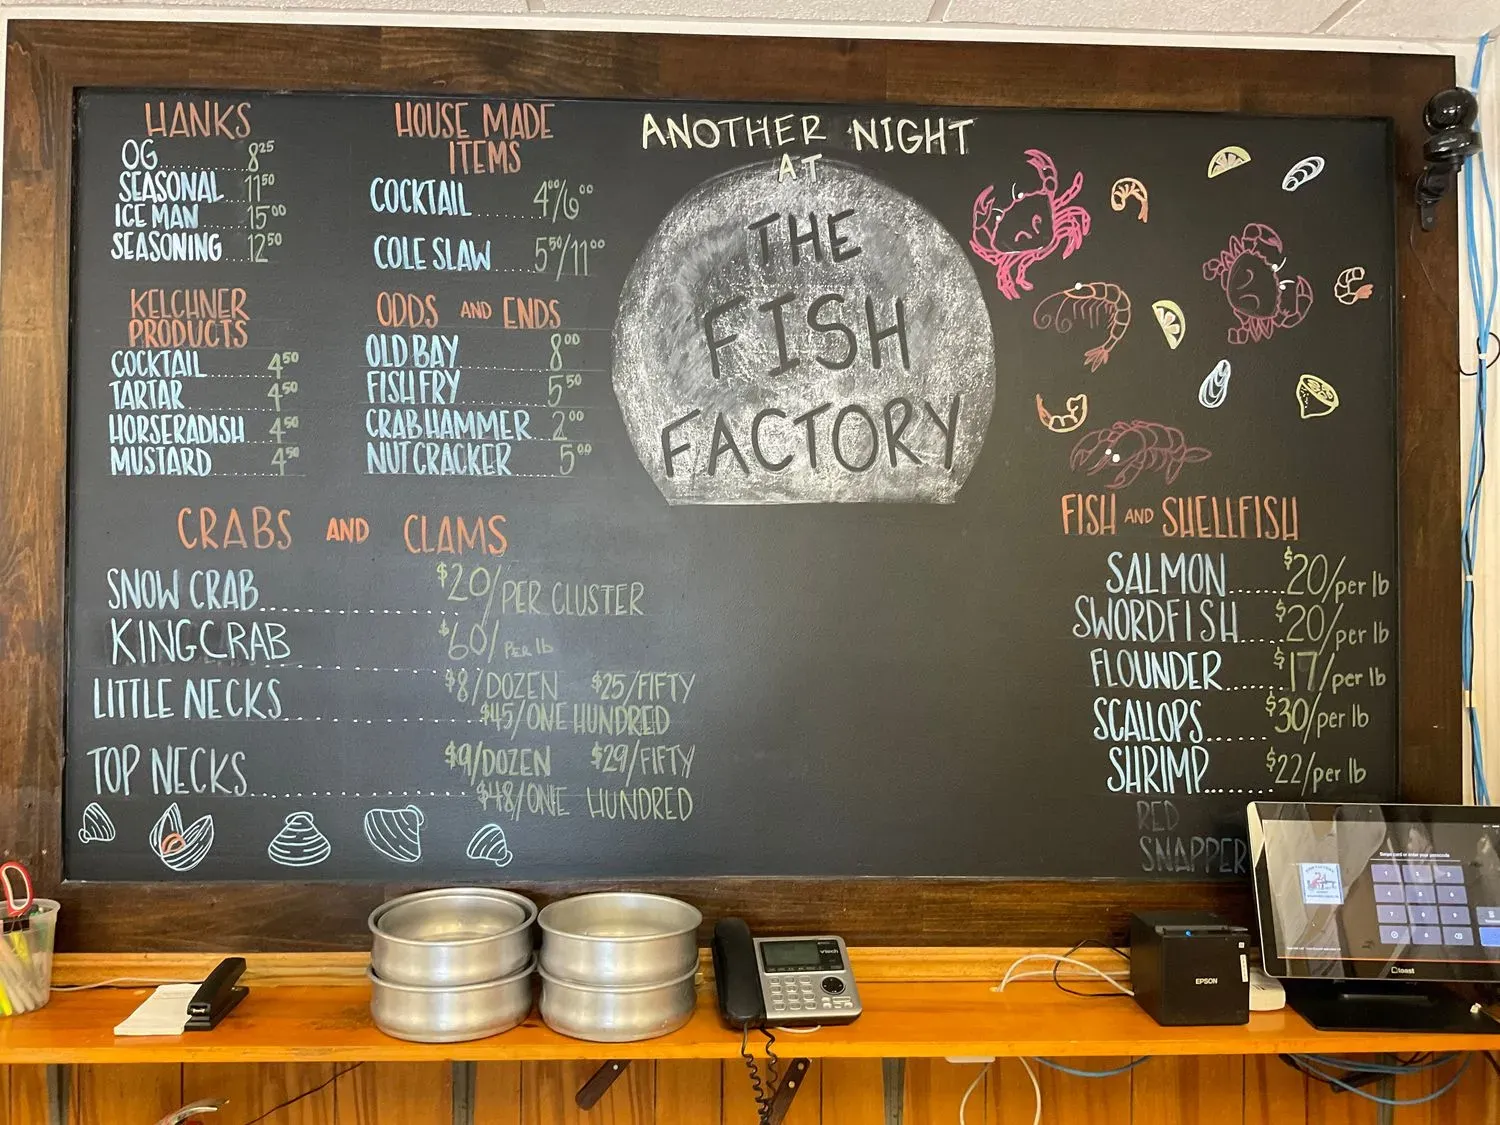 HANKS
OG......... 8²⁵
SEASONAL 11⁵⁰
ICE MAN ..... 15⁰⁰
SEASONING ... 12⁵⁰
KELCHNER
PRODUCTS
COCKTAIL ....... 4⁵⁰
TARTAR ......... 4⁵⁰
HORSERADISH ... 4⁵⁰
MUSTARD ....... 4⁵⁰
HOUSE MADE
ITEMS
COCKTAIL ....... 4⁰⁰/6⁰⁰
COLE SLAW ..... 5⁵⁰/11⁰⁰
ODDS AND ENDS
OLD BAY ........ 8⁰⁰
FISH FRY ........ 5⁵⁰
CRAB HAMMER ... 2⁰⁰
NUT CRACKER ..... 5⁰⁰
ANOTHER NIGHT
AT
THE
FISH
FACTORY
CRABS AND CLAMS
SNOW CRAB ........ $20/PER CLUSTER
KING CRAB ........ $60/PER lb
LITTLE NECKS ........ $8/DOZEN $25/FIFTY
$45/ONE HUNDRED
TOP NECKS ........ $9/DOZEN $29/FIFTY
$48/ONE HUNDRED
FISH AND SHELLFISH
SALMON....... $20/per lb
SWORDFISH.... $20/per lb
FLOUNDER...... $17/per lb
SCALLOPS...... $30/per lb
SHRIMP....... $22/per lb
RED
SNAPPER
vtech
EPSON
Swipe card or enter your passcode
1 2 3
4 5 6
7 8 9
0
toast